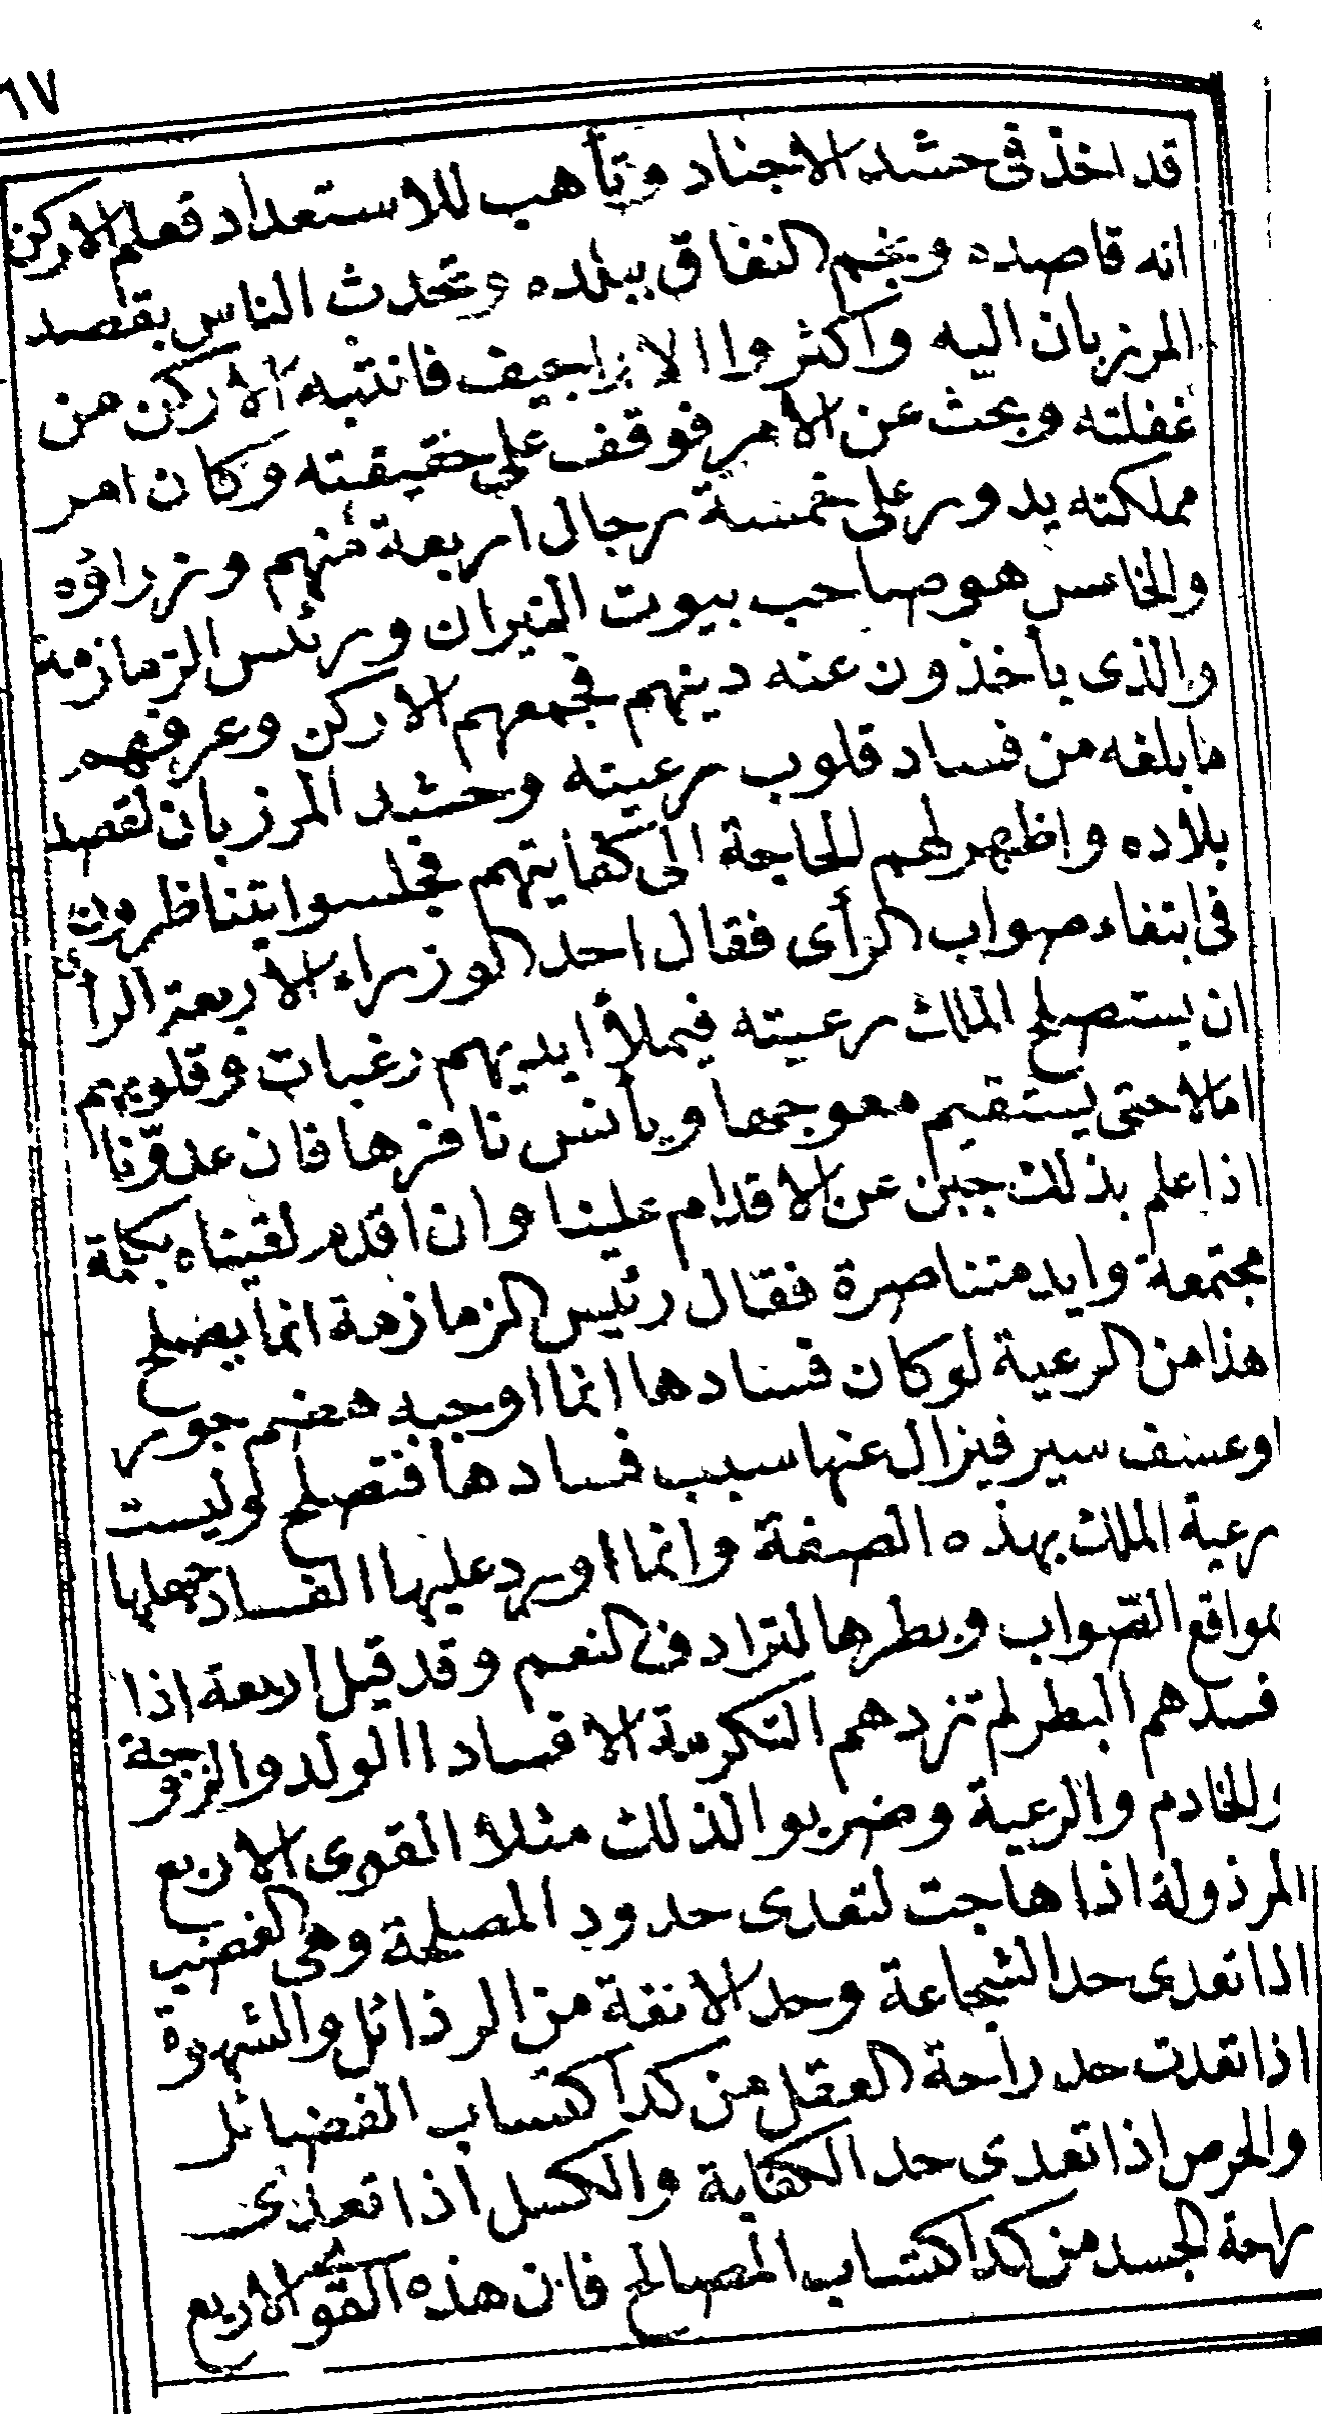 ٦٧
قد اخذ فى حشد الاجناد وتأهب للاستعداد فعلم الاركن
انه قاصده ونجم النفاق ببلده وتحدث الناس بقصد
المرزبان اليه واكثروا الاراجيف فانتبه الاركن من
غفلته وبحث عن الأمر فوقف على حقيقته وكان امر
مملكته يدور على خمسة رجال اربعة منهم وزراؤه
والخامس هو صاحب بيوت النيران ورئس الزمازمة
والذى يأخذون عنه دينهم فجمعهم الاركن وعرفهم
ما بلغه من فساد قلوب رعيته وحشد المرزبان لقصد
بلاده واظهر لهم الحاجة الى كفايتهم فجلسوا يتناظرون
فى ابتغاء صواب الرأى فقال احد الوزراء الأربعة الرأى
ان يستصلح الملك رعيته فيملأ ايديهم رغبات وقلوبهم
امالا حتى يستقيم معوجها ويأنس نافرها فان عدوّنا
اذا علم بذلك جبن عن الاقدام علينا وان اقدم لقيناه بكلمة
مجتمعة وايد متناصرة فقال رئيس الزمازمة انما يصلح
هذا من الرعية لو كان فسادها انما اوجبه هضم جور
او عسف سير فيزال عنها سبب فسادها فتصلح وليست
رعية الملك بهذه الصفة وانما اورد عليها الفساد جهلها
بمواقع الصواب وبطرها لتراد فى النعم وقد قيل اربعة اذا
فسدهم البطر لم تزدهم التكرمة الا فسادا الولد والزوجة
والخادم والرعية وضربوا لذلك مثلا القوى الاربع
المرذولة اذا هاجت لتعدى حدود المصلحة وهى الغضب
اذا تعدى حد الشجاعة وحد الانفة من الرذائل والشهوة
اذا تعدت حد راحة العقل من كد اكتساب الفضائل
والحرص اذا تعدى حد الكفاية والكسل اذا تعدى
راحة الجسد من كد اكتساب المصالح فان هذه القوى الاربع